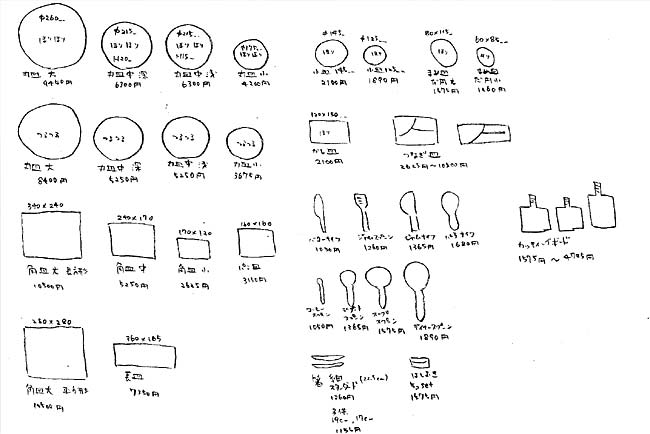 φ260
ほりほり
丸皿 大
9450円
φ215
ほり ほり
H20
丸皿 中 深
6300円
φ215
ほり ほり
H15
丸皿 中 浅
6300円
ほりほり
丸皿 小
4200円
φ145
小皿 145
2100円
φ125
1890円
80×115
豆皿
だ円大
1575円
60×85
だ円小
1260円
つるつる
丸皿 大
8400円
つるつる
丸皿 中 深
5250円
つるつる
丸皿 中 浅
5250円
つるつる
丸皿 小
3675円
ほり
2100円
つなぎ皿
2625円〜10500円
340×240
角皿 大 長方形
10500円
240×170
角皿 中
5250円
170×120
角皿 小
2625円
160×160
パン皿
3150円
バターナイフ
1050円
1260円
ジャムナイフ
1365円
1680円
カッティングボード
1575円 〜 4725円
コーヒー
スプーン
1050円
デザート
スプーン
1365円
スープ
スプーン
1575円
1890円
280×280
角皿 大 正方形
10500円
360×165
長皿
7350円
箸 細
スタンダード(22.5cm)
1260円
子供
19cm, 17cm
1155円
はしおき
5コset
1575円